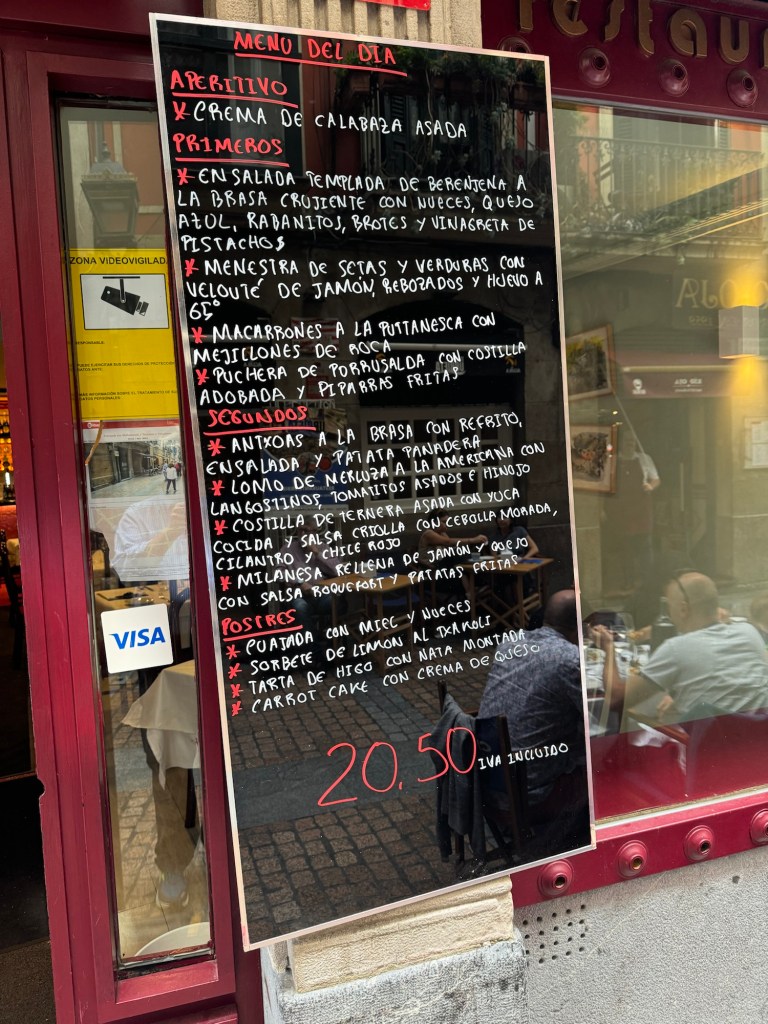 restaur
MENU DEL DIA
APERITIVO
* CREMA DE CALABAZA ASADA
PRIMEROS
* ENSALADA TEMPLADA DE BERENJENA A
LA BRASA CRUJIENTE CON NUECES, QUEJO
AZUL, RABANITOS, BROTES Y VINAGRETA DE
PISTACHOS
* MENESTRA DE SETAS Y VERDURAS CON
VELOUTÉ DE JAMÓN, REBOZADOS Y HUEVO A
65°
* MACARRONES A LA PUTTANESCA CON
MEJILLONES DE ROCA
* PUCHERA DE PORRUSALDA CON COSTILLA
ADOBADA Y PIPARRAS FRITAS
SEGUNDOS
* ANTXOAS A LA BRASA CON REFRITO,
ENSALADA Y PATATA PANADERA
* LOMO DE MERLUZA A LA AMERICANA CON
LANGOSTINOS, TOMATITOS ASADOS E HINOJO
* COSTILLA DE TERNERA ASADA CON YUCA
COCIDA Y SALSA CRIOLLA CON CEBOLLA MORADA,
CILANTRO Y CHILE ROJO
* MILANESA RELLENA DE JAMÓN Y QUEJO
CON SALSA ROQUEFORT Y PATATAS FRITAS
POSTRES
* CUAJADA CON MIEL Y NUECES
* SORBETE DE LIMON AL TXAKOLI
* TARTA DE HIGO CON NATA MONTADA
* CARROT CAKE CON CREMA DE QUESO
20,50 IVA INCLUIDO
ZONA VIDEOVIGILADA
VISA